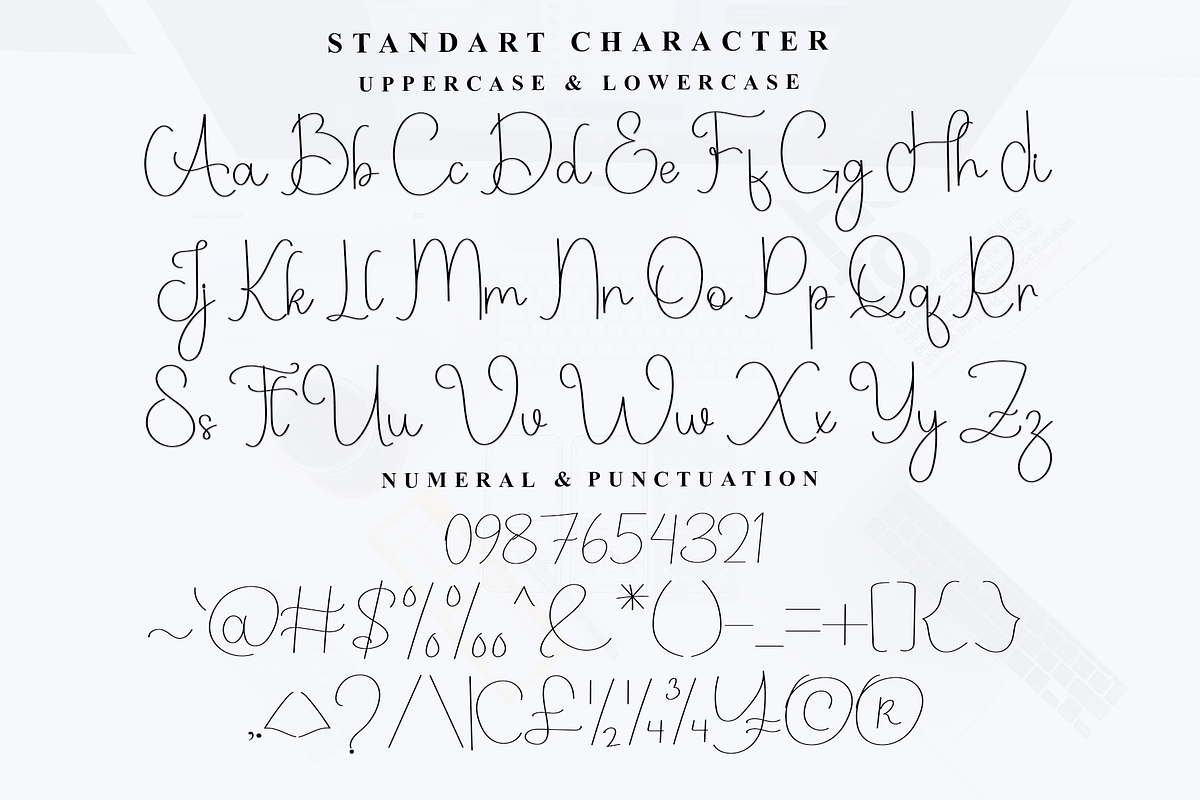 STANDART CHARACTER
UPPERCASE & LOWERCASE
Aa Bb Cc Dd Ee Ff Gg Hh Ii
Jj Kk Ll Mm Nn Oo Pp Qq Rr
Ss Tt Uu Vv Ww Xx Yy Zz
NUMERAL & PUNCTUATION
0987654321
~`@#$%‰^&*()-_=+[]{}
,.<>?/\|C£½¼¾¥©®